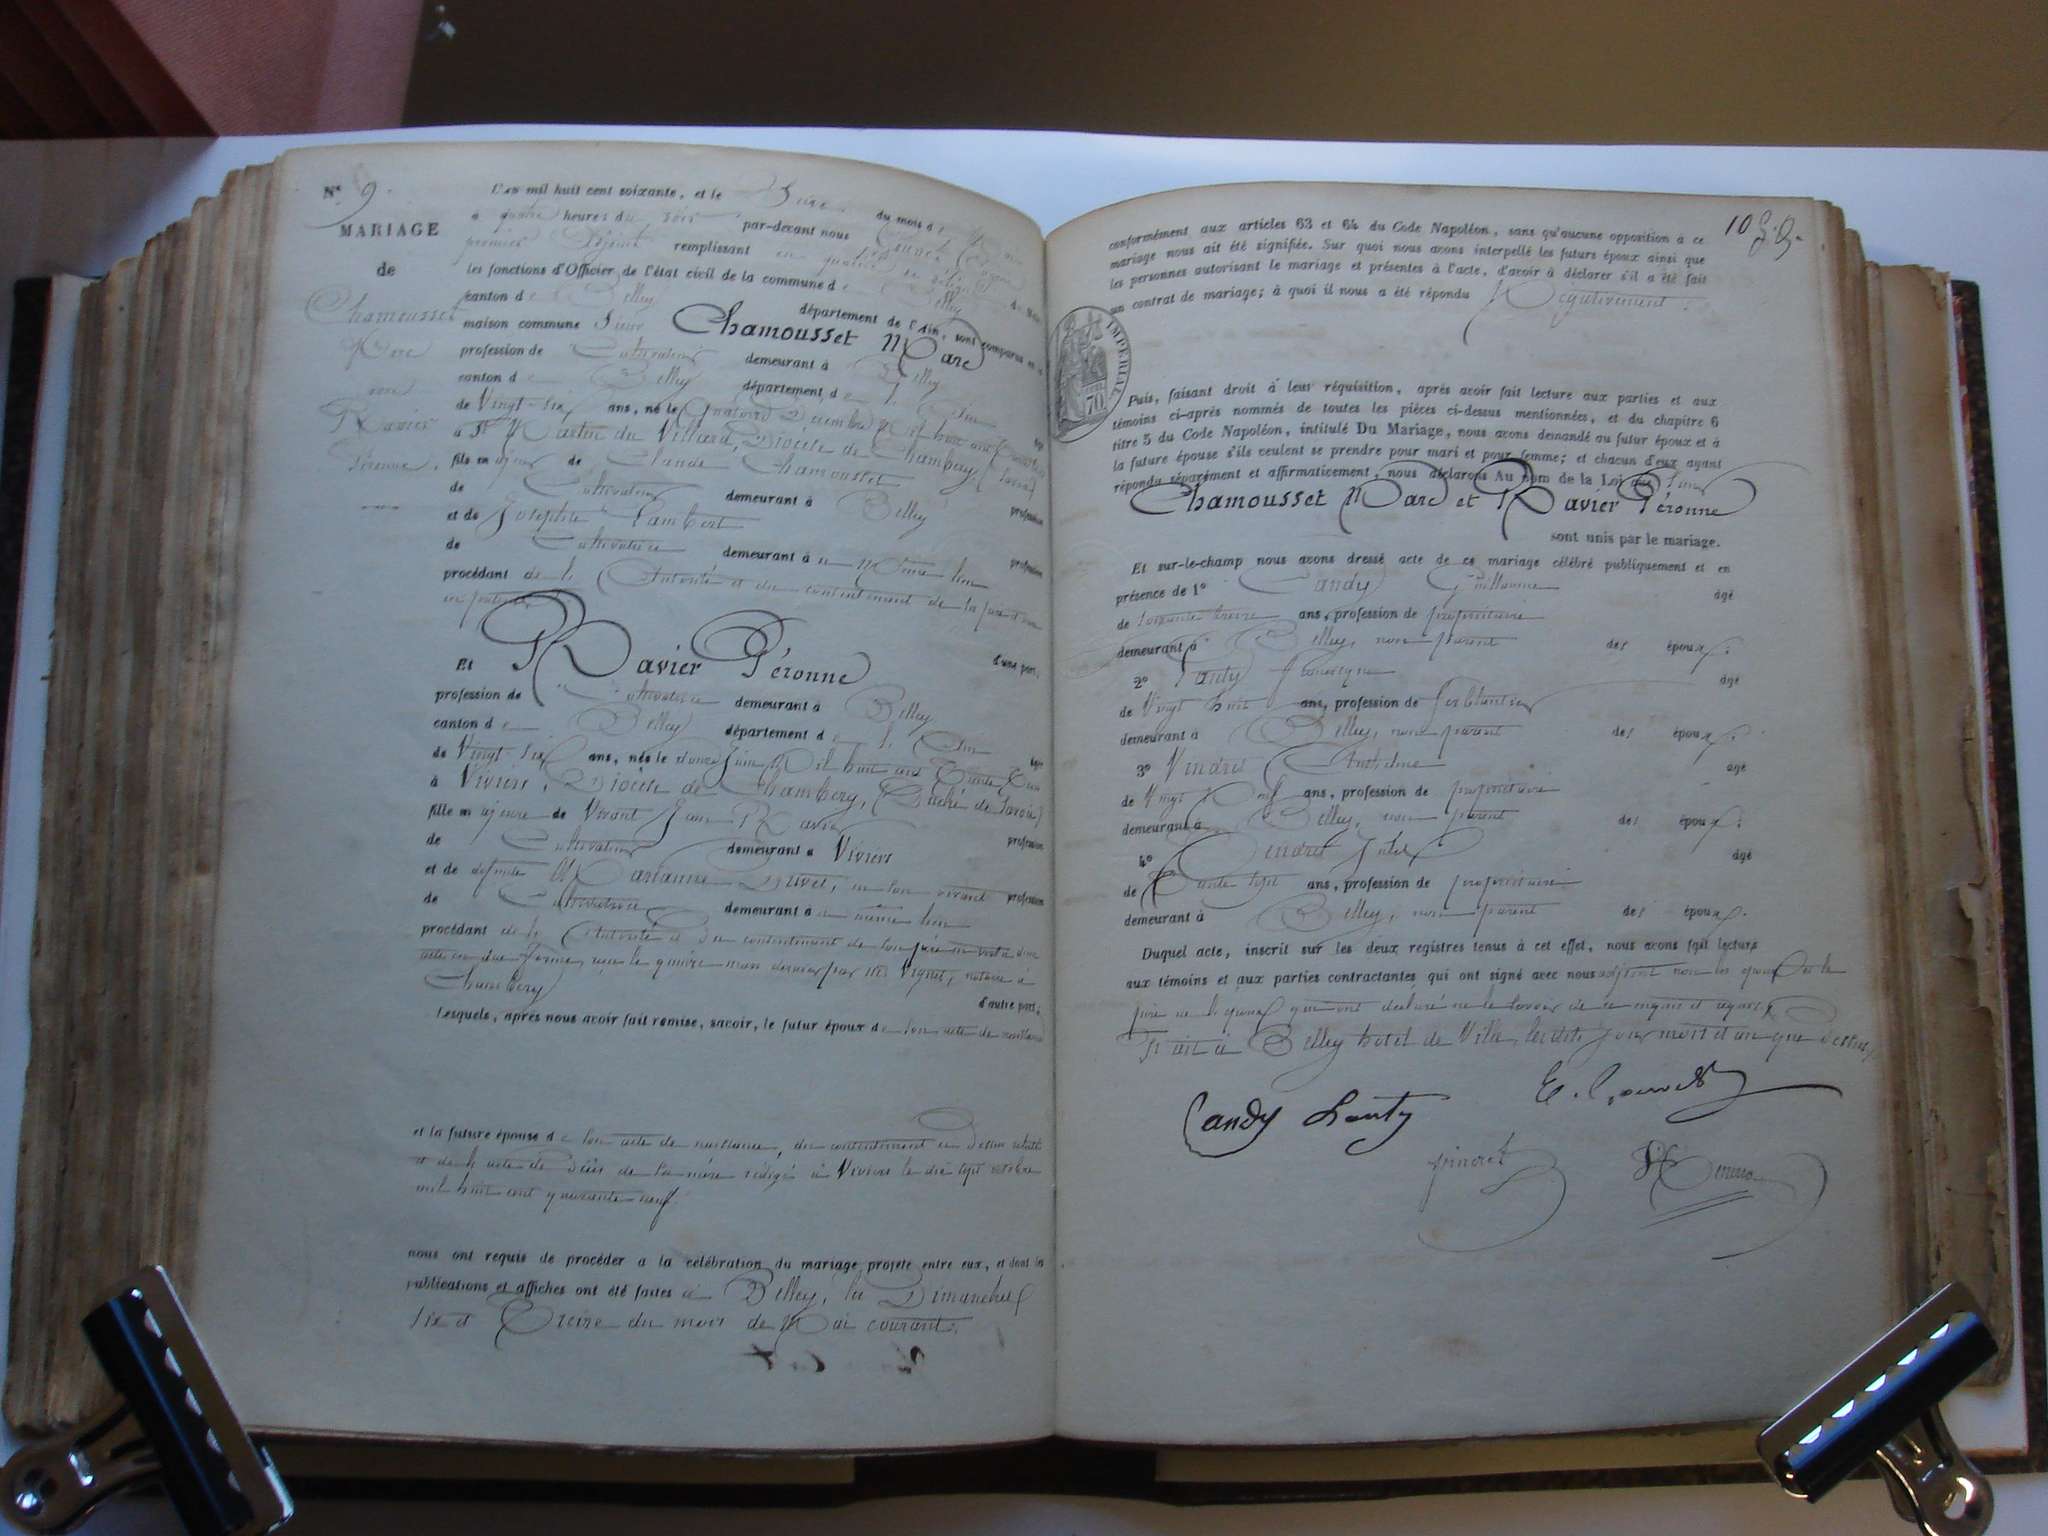 N° 9.
MARIAGE
de
Chamousset
Marc
avec
Ravier
Péronne.
L'an mil huit cent soixante, et le Seize du mois de Mai
à quatre heures du soir par-devant nous
premier Adjoint remplissant
les fonctions d'Officier de l'état civil de la commune de Belley
canton de Belley département de l'Ain, sont comparus en la
maison commune Sieur Chamousset Marc
profession de Cultivateur demeurant à Belley
canton de Belley département de l'Ain
de Vingt-six ans, né le Quatorze Décembre Mil huit cent
à St Martin du Villard, Diocèse de Chambéry, (Savoie)
fils majeur de Claude Chamousset
de Cultivateur demeurant à Belley profession
et de Josephte Lambert
de Cultivatrice demeurant à au même lieu profession
procédant de l'Autorité et du consentement de
d'une part,
Et Ravier Péronne
profession de Cultivatrice demeurant à Belley
canton de Belley département de l'Ain
de Vingt-six ans, née le Juin Mil huit cent Trente
à Viviers, Diocèse de Chambéry, (Duché de Savoie)
fille majeure de Vivant Jean Ravier
de Cultivateur demeurant à Viviers profession
et de défunte Marianne en son vivant profession
de Cultivatrice demeurant à au même lieu
procédant de l'Autorité et Du consentement de son père en vertu d'un
acte en due forme, reçu le quinze mars dernier par Me Vignet, notaire à
Chambéry
d'autre part;
Lesquels, après nous avoir fait remise, savoir, le futur époux de son acte de naissance
et la future épouse de son acte de naissance, du consentement ci Dessus relaté
et de l'acte de Décès de sa mère rédigé à Viviers le dix sept octobre
mil huit cent quarante neuf.
nous ont requis de procéder à la célébration du mariage projeté entre eux, et dont les
publications et affiches ont été faites à Belley, les Dimanches
six et Treize du mois de Mai courant.
10
conformément aux articles 63 et 64 du Code Napoléon, sans qu'aucune opposition à ce
mariage nous ait été signifiée. Sur quoi nous avons interpellé les futurs époux ainsi que
les personnes autorisant le mariage et présentes à l'acte, d'avoir à déclarer s'il a été fait
un contrat de mariage; à quoi il nous a été répondu Négativement.
IMPERIAL
70
Puis, faisant droit à leur réquisition, après avoir fait lecture aux parties et aux
témoins ci-après nommés de toutes les pièces ci-dessus mentionnées, et du chapitre 6
titre 5 du Code Napoléon, intitulé Du Mariage, nous avons demandé au futur époux et à
la future épouse s'ils veulent se prendre pour mari et pour femme; et chacun d'eux ayant
répondu séparément et affirmativement, nous déclarons Au nom de la Loi que Sieur
Chamousset Marc et Ravier Péronne
sont unis par le mariage.
Et sur-le-champ nous avons dressé acte de ce mariage célébré publiquement et en
présence de 1° Candy Guillaume âgé
de soixante treize ans, profession de propriétaire
demeurant à Belley, non parent des époux;
2° Lanty François âgé
de Vingt huit ans, profession de ferblantier
demeurant à Belley, non parent des époux;
3° Anthelme âgé
de Vingt Neuf ans, profession de propriétaire
demeurant à Belley, non parent des époux;
4° Jules âgé
de Trente sept ans, profession de propriétaire
demeurant à Belley, non parent des époux.
Duquel acte, inscrit sur les deux registres tenus à cet effet, nous avons fait lecture
aux témoins et aux parties contractantes qui ont signé avec nous adjoint non les époux et le
père de l'époux qui ont déclaré ne le savoir de ce enquis et requis.
Fait à Belley hotel de Ville, lesdits jour mois et an que dessus.
Candy Lanty